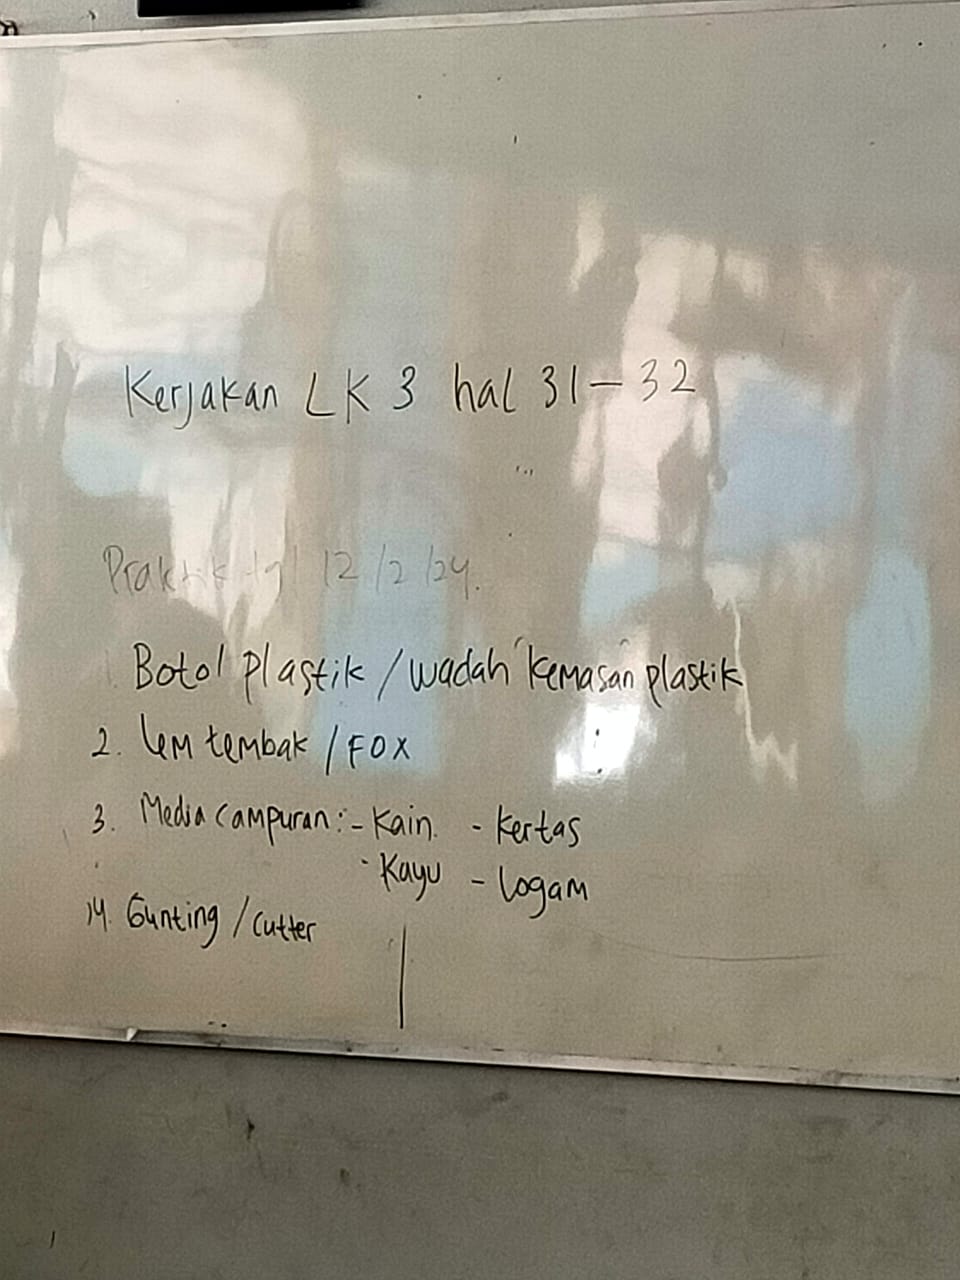 Kerjakan LK 3 hal 31-32
Praktik tgl 12/2/24.
1. Botol plastik / wadah kemasan plastik
2. Lem tembak / FOX
3. Media campuran: - Kain. - Kertas
- Kayu - Logam
4. Gunting / Cutter